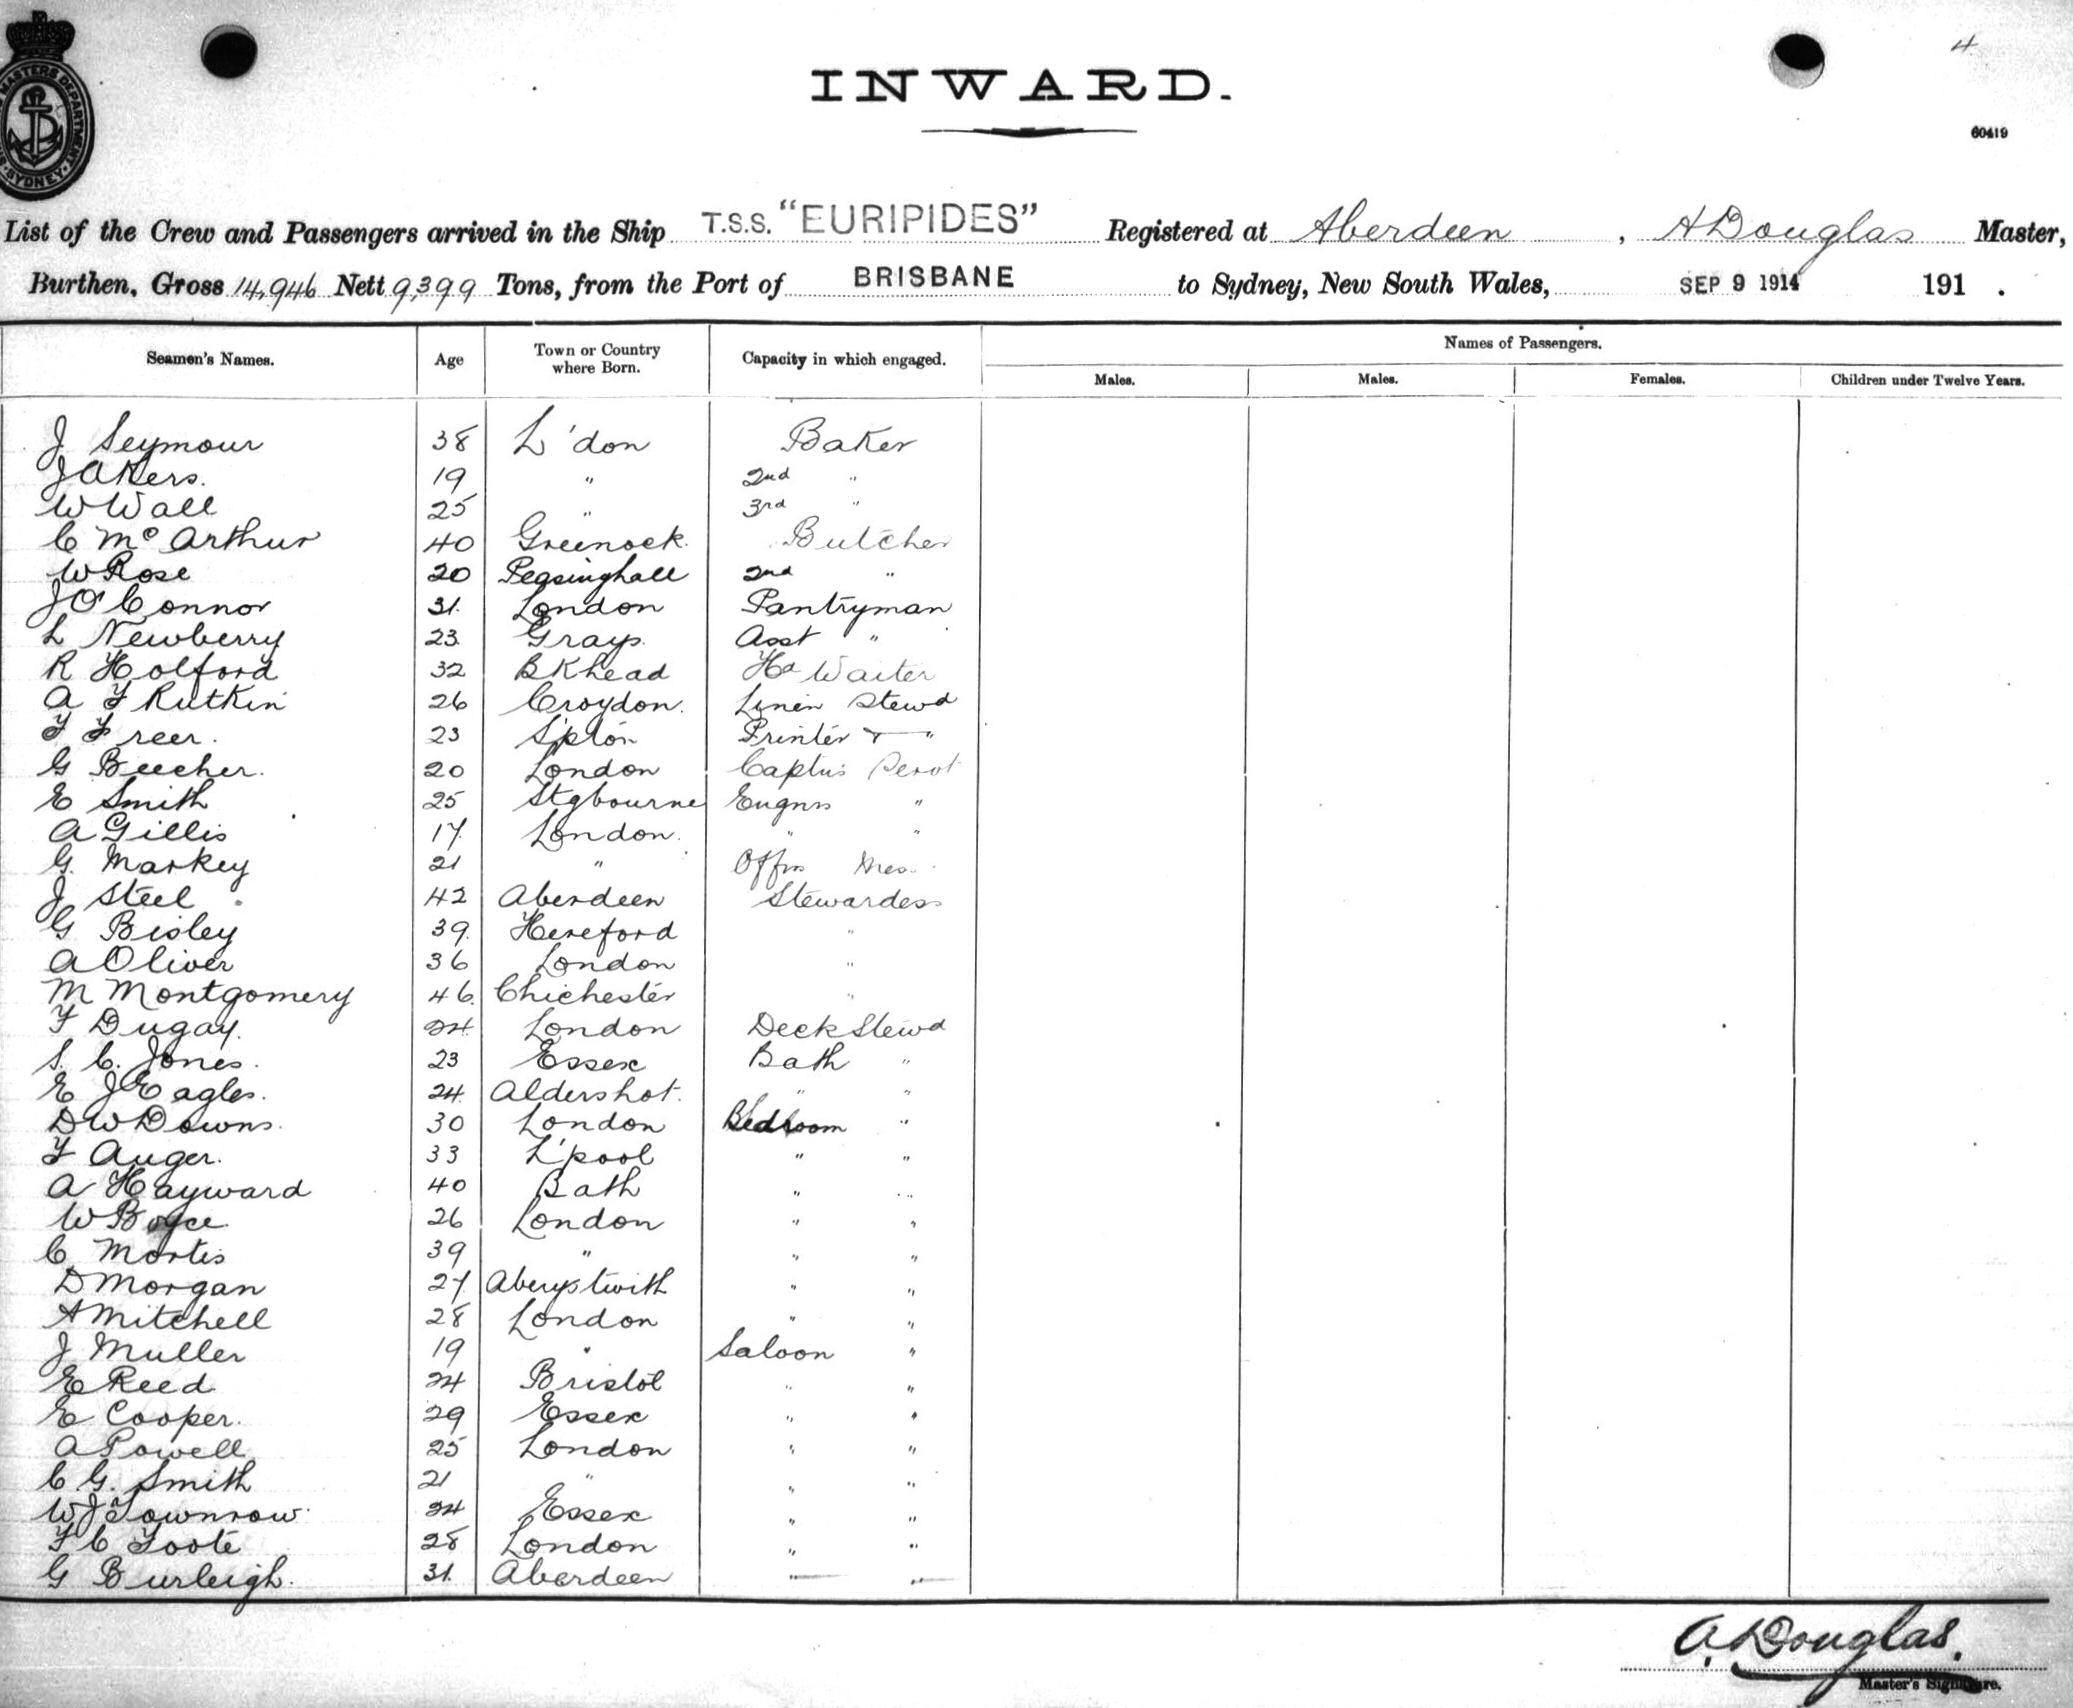 4
INWARD.
60419
MASTERS DEPARTMENT
SYDNEY
List of the Crew and Passengers arrived in the Ship T.S.S. "EURIPIDES" Registered at Aberdeen, A Douglas Master,
Burthen, Gross 14,946 Nett 9,399 Tons, from the Port of BRISBANE to Sydney, New South Wales, SEP 9 1914 191 .
Names of Passengers.
Seamen's Names. Age Town or Country where Born. Capacity in which engaged. Males. Males. Females. Children under Twelve Years.
J Seymour 38 L'don Baker
J Akers. 19 " 2nd "
W Wall 25 " 3rd "
C McArthur 40 Greenock Butcher
W Rose 20 2nd "
J O'Connor 31 London Pantryman
L Newberry 23 Grays. Asst "
R Holford 32 BKhead Hd Waiter
A F Rutkin 26 Croydon. Linen Stewd
F Freer. 23 S'pton Printer & "
G Beecher. 20 London Capt's
E Smith 25 Stgbourne Engnrs "
A Gillis 17 London. " "
G. Markey 21 " Offrs Mes.
J Steel 42 Aberdeen Stewardess
G Bisley 39. Hereford "
A Oliver 36 London "
M Montgomery 46. Chichester "
F Dugay. 24. London Deck Stewd
S. C. Jones. 23 Essex Bath "
E J Eagles. 24. Aldershot. " "
D W Downs. 30 London Bedroom "
F Auger. 33 L'pool " "
A Hayward 40 Bath " "
W Boyce 26 London " "
C Mortis 39 " " "
D Morgan 27. Aberystwith " "
A Mitchell 28 London " "
J Muller 19 " Saloon "
E Reed 24 Bristol " "
E Cooper. 29 Essex " "
A Powell 25 London " "
C. G. Smith 21 " " "
W J Townrow 24 Essex " "
F C Foote 28 London " "
G Burleigh. 31. Aberdeen " "
A. Douglas.
Master's Signature.